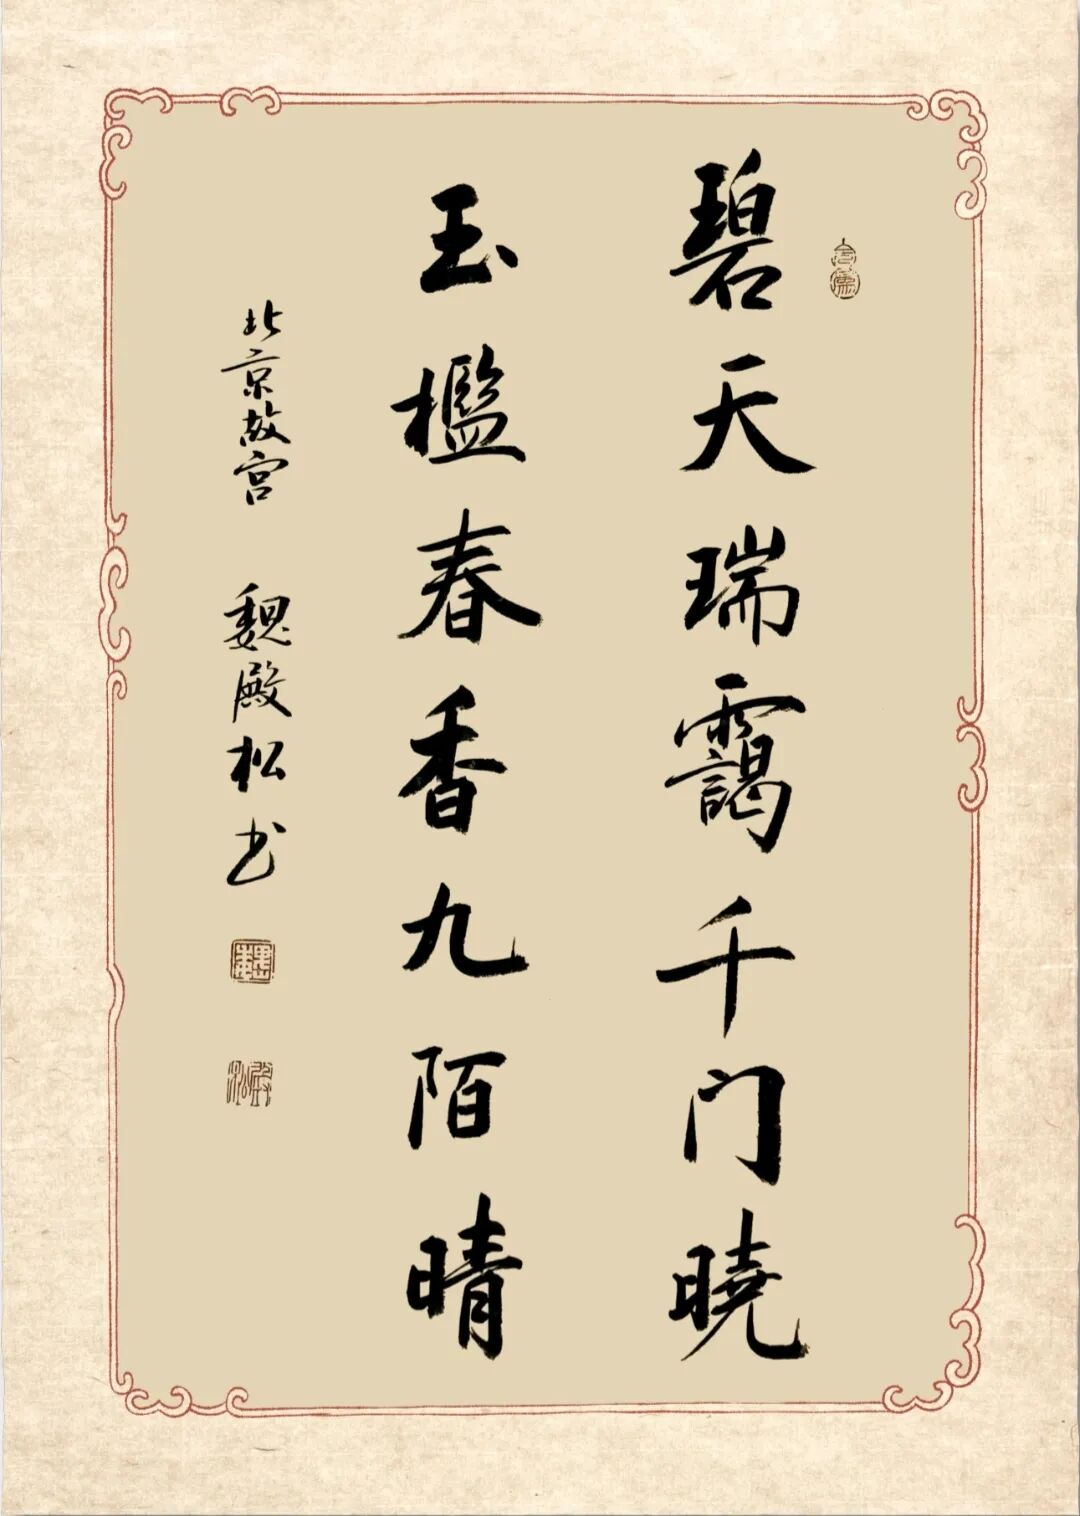 碧天瑞靄千门曉
玉檻春香九陌晴
北京故宫 魏殿松书